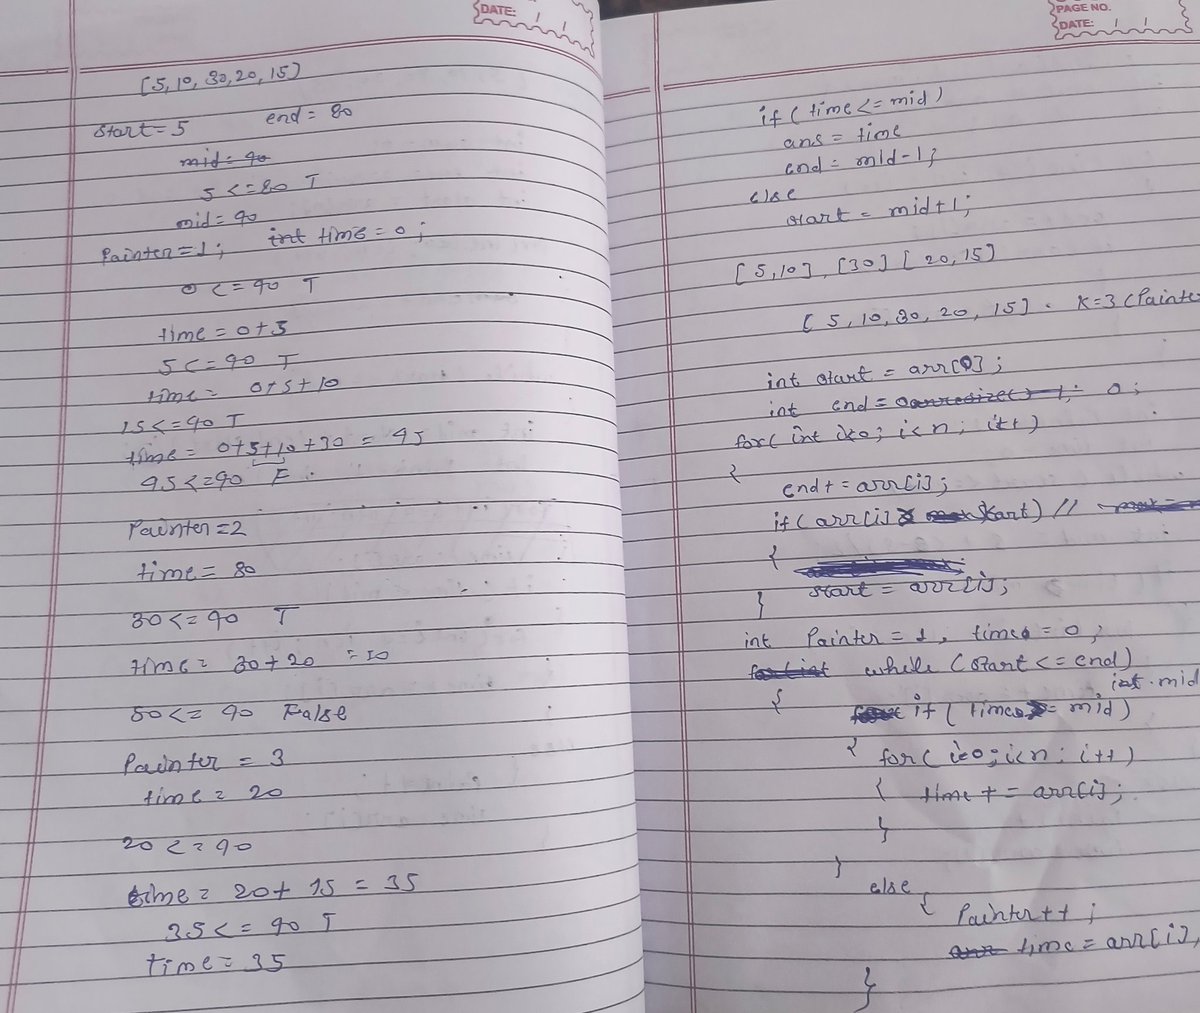 DATE: / /
[5, 10, 30, 20, 15]
start = 5 end = 80
mid = 40
5 <= 80 T
mid = 40
Painter = 1; int time = 0;
0 <= 40 T
time = 0+5
5 <= 40 T
time = 0+5+10
15 <= 40 T
time = 0+5+10+30 = 45
45 <= 40 F
Painter = 2
time = 30
30 <= 40 T
time = 30+20 = 50
50 <= 40 False
Painter = 3
time = 20
20 <= 40
time = 20+15 = 35
35 <= 40 T
time = 35
PAGE NO.
DATE: / /
if (time <= mid)
ans = time
end = mid-1;
else
start = mid+1;
[5,10], [30] [20,15]
[5, 10, 30, 20, 15]. K=3 (Painte
int start = arr[0];
int end = 0;
for( int i=0; i<n; i++)
{
end+ = arr[i];
if( arr[i] > start) //
{
start = arr[i];
}
int Painter = 1, time = 0;
for (int while (start <= end)
{ int mid
if( time <= mid)
{ for( i=0; i<n; i++)
{ time + = arr[i];
}
}
else
{ Painter++;
time = arr[i],
}